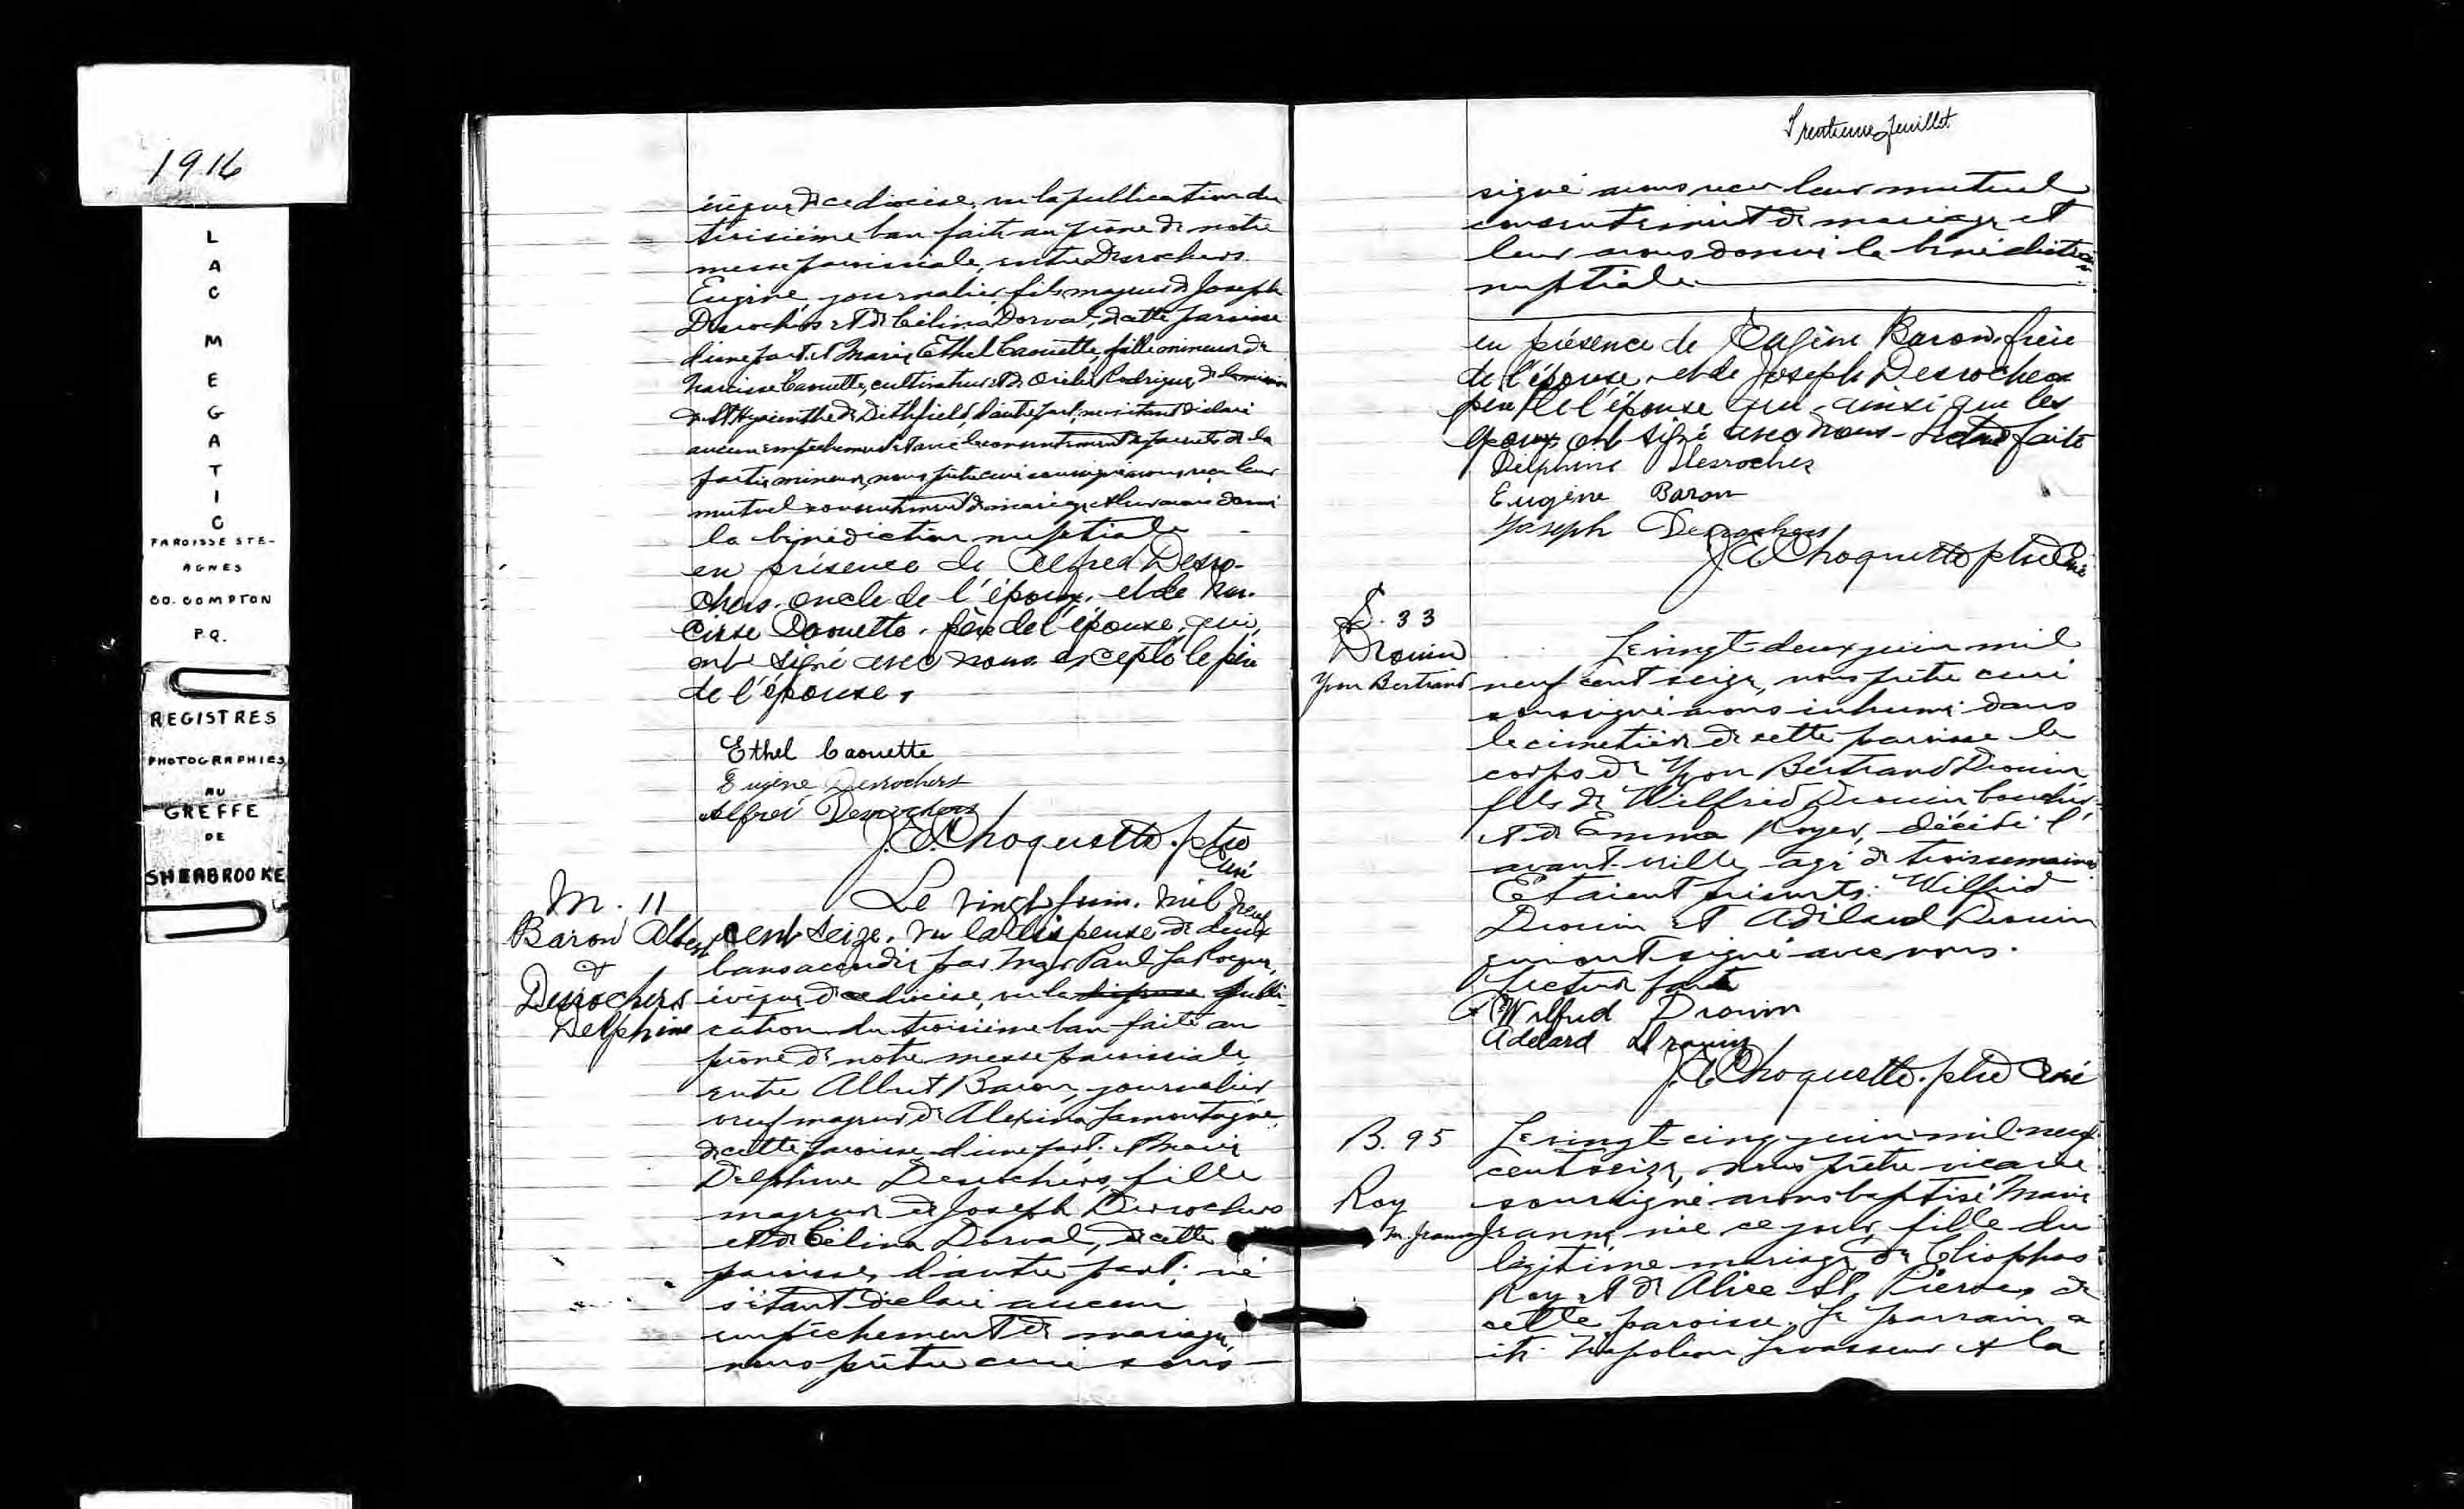 1916
L
A
C
M
E
G
A
T
I
C
PAROISSE STE-
AGNES
CO. COMPTON
P.Q.
REGISTRES
PHOTOGRAPHIES
AU
GREFFE
DE
SHERBROOKE
évêque de ce diocèse, vu la publication du
troisième ban faite au prône de notre
messe paroissiale, entre Desrochers
Eugène, journalier, fils majeur de Joseph
Desrochers et de Célina Dorval, de cette paroisse
d'une part, et Marie Ethel Caouette, fille mineure de
Narcisse Caouette, cultivateur et de Rodrigue, de la mission
de St Hyacinthe de Ditchfield, d'autre part, ne s'étant déclaré
aucun empêchement et avec le consentement des parents de la
partie mineure, nous prêtre curé soussigné avons reçu leur
mutuel consentement de mariage et leur avons donné
la bénédiction nuptiale
en présence de Alfred Desro-
chers. oncle de l'époux. et de Nar-
cisse Caouette. père de l'épouse, qui,
ont signé avec nous excepté le père
de l'épouse,
Ethel Caouette
Eugène Desrochers
Alfred Desrochers
J.E. Choquette. ptre
Curé
M. 11
Baron Albert
&
Desrochers
Delphine
Le vingt juin. mil neuf
cent seize. vu la dispense de deux
bans accordée par Mgr Paul LaRocque,
évêque de ce diocèse, vu la dispense publi-
cation du troisième ban faite au
prône de notre messe paroissiale
entre Albert Baron, journalier
veuf majeur de Alexina Lamontagne,
de cette paroisse d'une part. et Marie
Delphine Desrochers, fille
majeure de Joseph Desrochers
et de Célina Dorval, de cette
paroisse, d'autre part; ne
s'étant déclaré aucun
empêchement de mariage,
nous prêtre curé sous-
Trentième feuillet.
signé avons reçu leur mutuel
consentement de mariage et
leur avons donné la bénédiction
nuptiale
en présence de Eugène Baron. frère
de l'épouse. et de Joseph Desrochers
père de l'épouse qui. ainsi que les
époux ont signé avec nous. Lecture faite
Delphine Desroches
Eugène Baron
Joseph Desrochers
J.E. Choquette ptre Curé
S. 33
Drouin
Yvon Bertrand
Le vingt-deux juin mil
neuf cent seize, nous prêtre curé
soussigné avons inhumé dans
le cimetière de cette paroisse le
corps de Yvon Bertrand Drouin
fils de Wilfrid Drouin boucher
et de Emma Royer, décédé l'
avant-veille, agé de trois semaines
Etaient présents: Wilfrid
Drouin et Adélard Drouin
qui ont signé avec nous.
Lecture faite
Wilfrid Drouin
Adelard Drouin
J.E. Choquette. ptre Curé
B. 95
Roy
M. Jeanne
Le vingt-cinq juin mil neuf
cent seize, nous prêtre vicaire
soussigné avons baptisé Marie
Jeanne, née ce jour, fille du
légitime mariage de Cléophas
Roy et de Alice St. Pierre, de
cette paroisse. Le parrain a
été Napoléon Levasseur et la